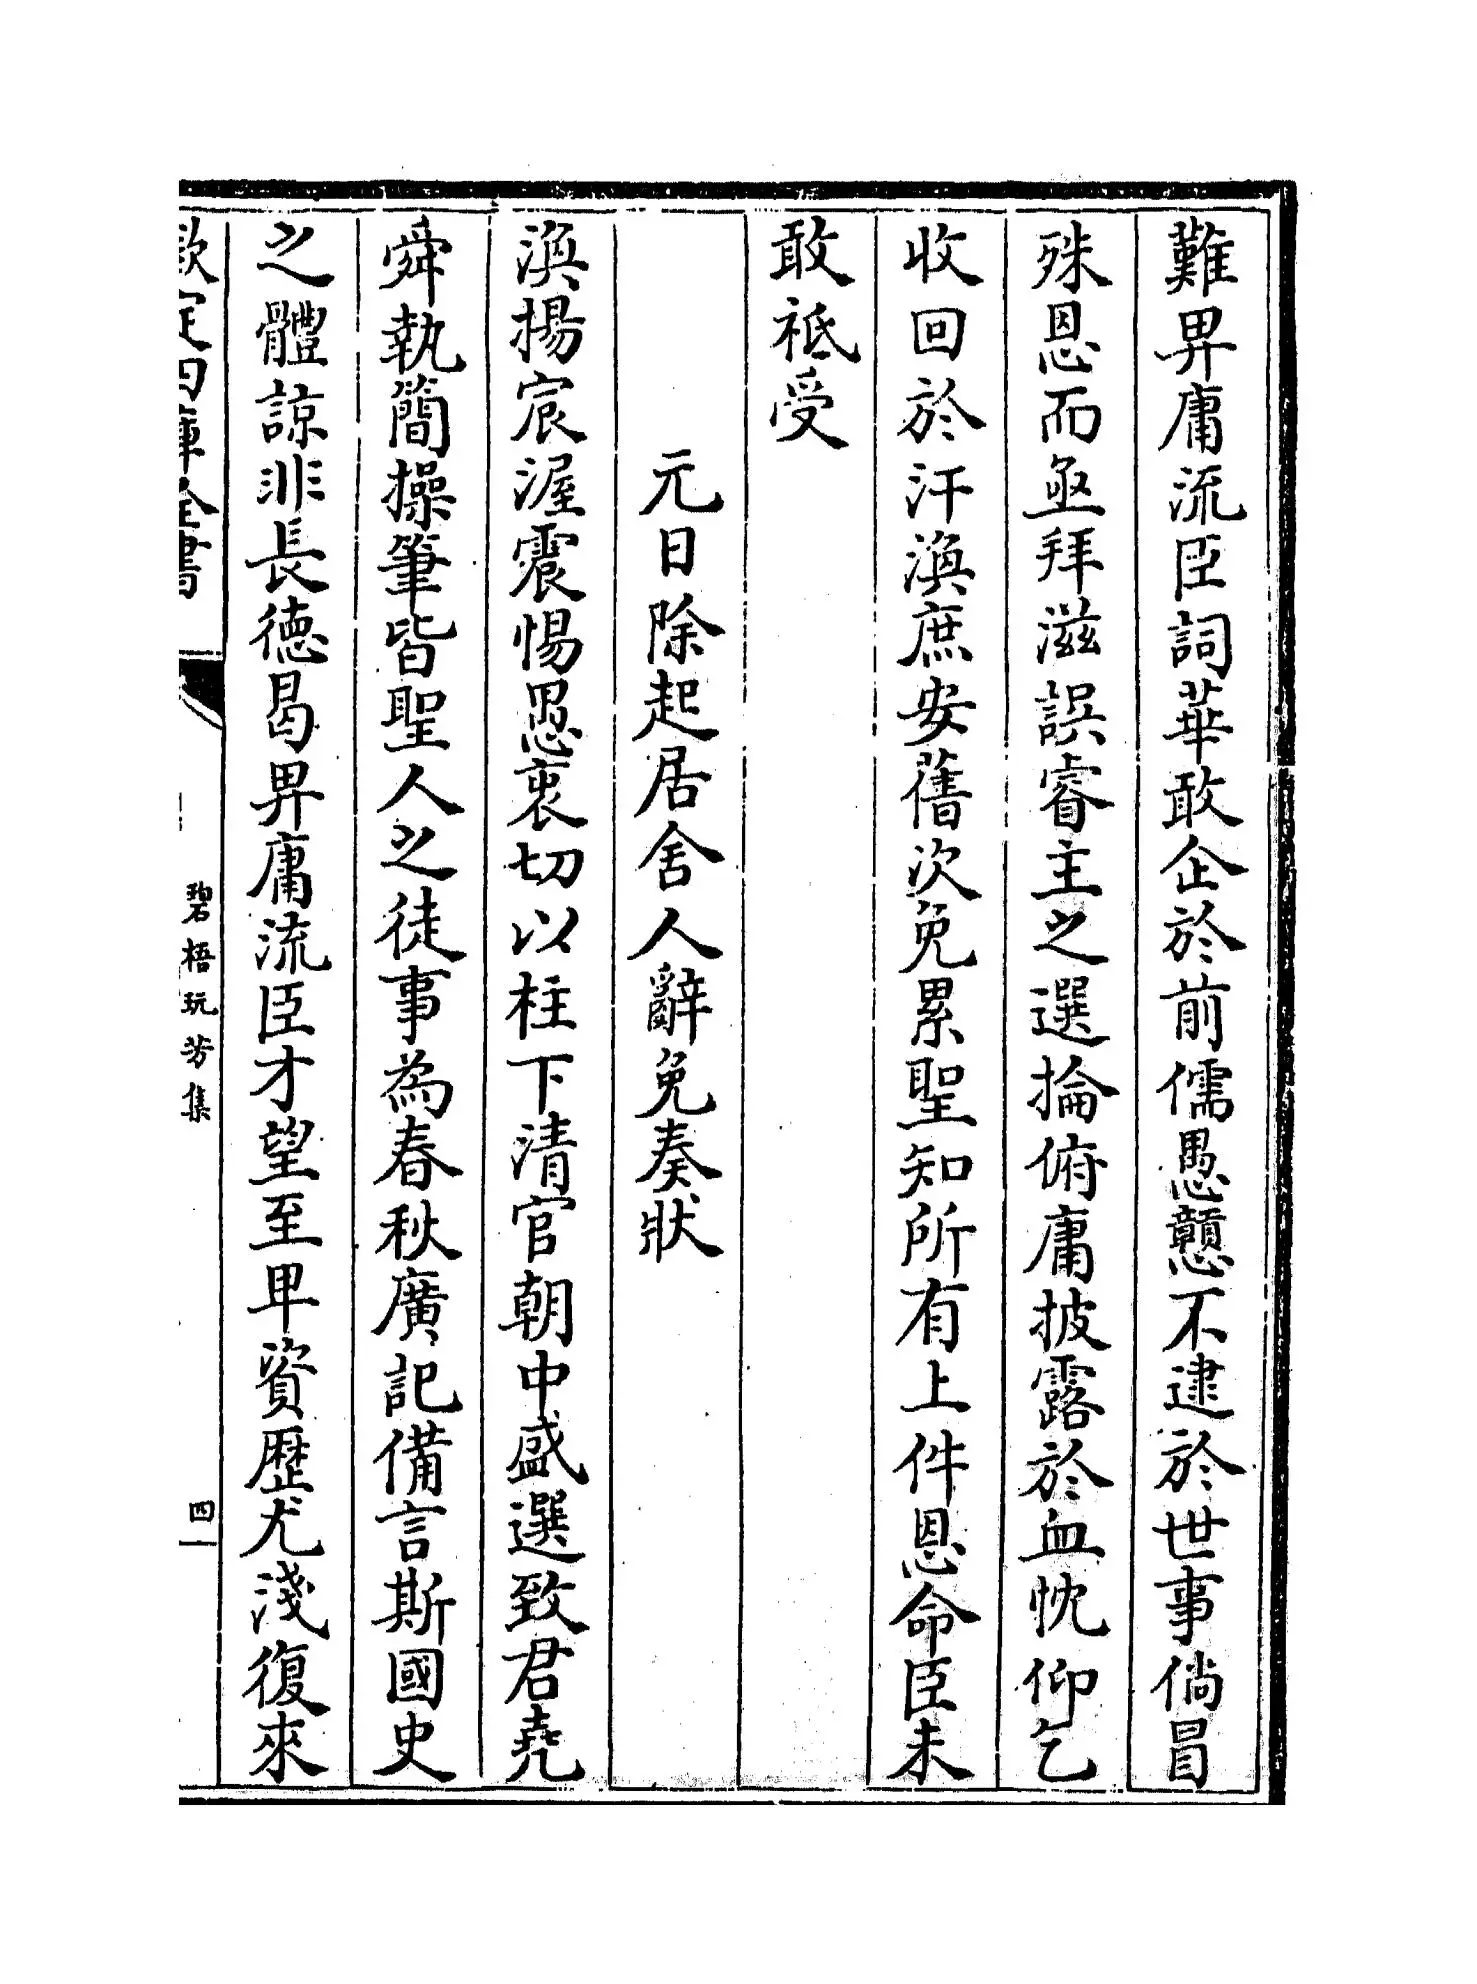 難畀庸流臣詞華敢企於前儒愚戇不逮於世事倘冒
殊恩而亟拜滋誤睿主之選掄俯庸披露於血忱仰乞
收回於汗渙庶安舊次免累聖知所有上件恩命臣未
敢祗受
元日除起居舍人辭免奏狀
渙揚宸渥震惕愚衷切以柱下清官朝中盛選致君堯
舜執簡操筆皆聖人之徒事為春秋廣記備言斯國史
之體諒非長德曷畀庸流臣才望至卑資歴尤淺復來
欽定四庫全書
碧梧玩芳集
四